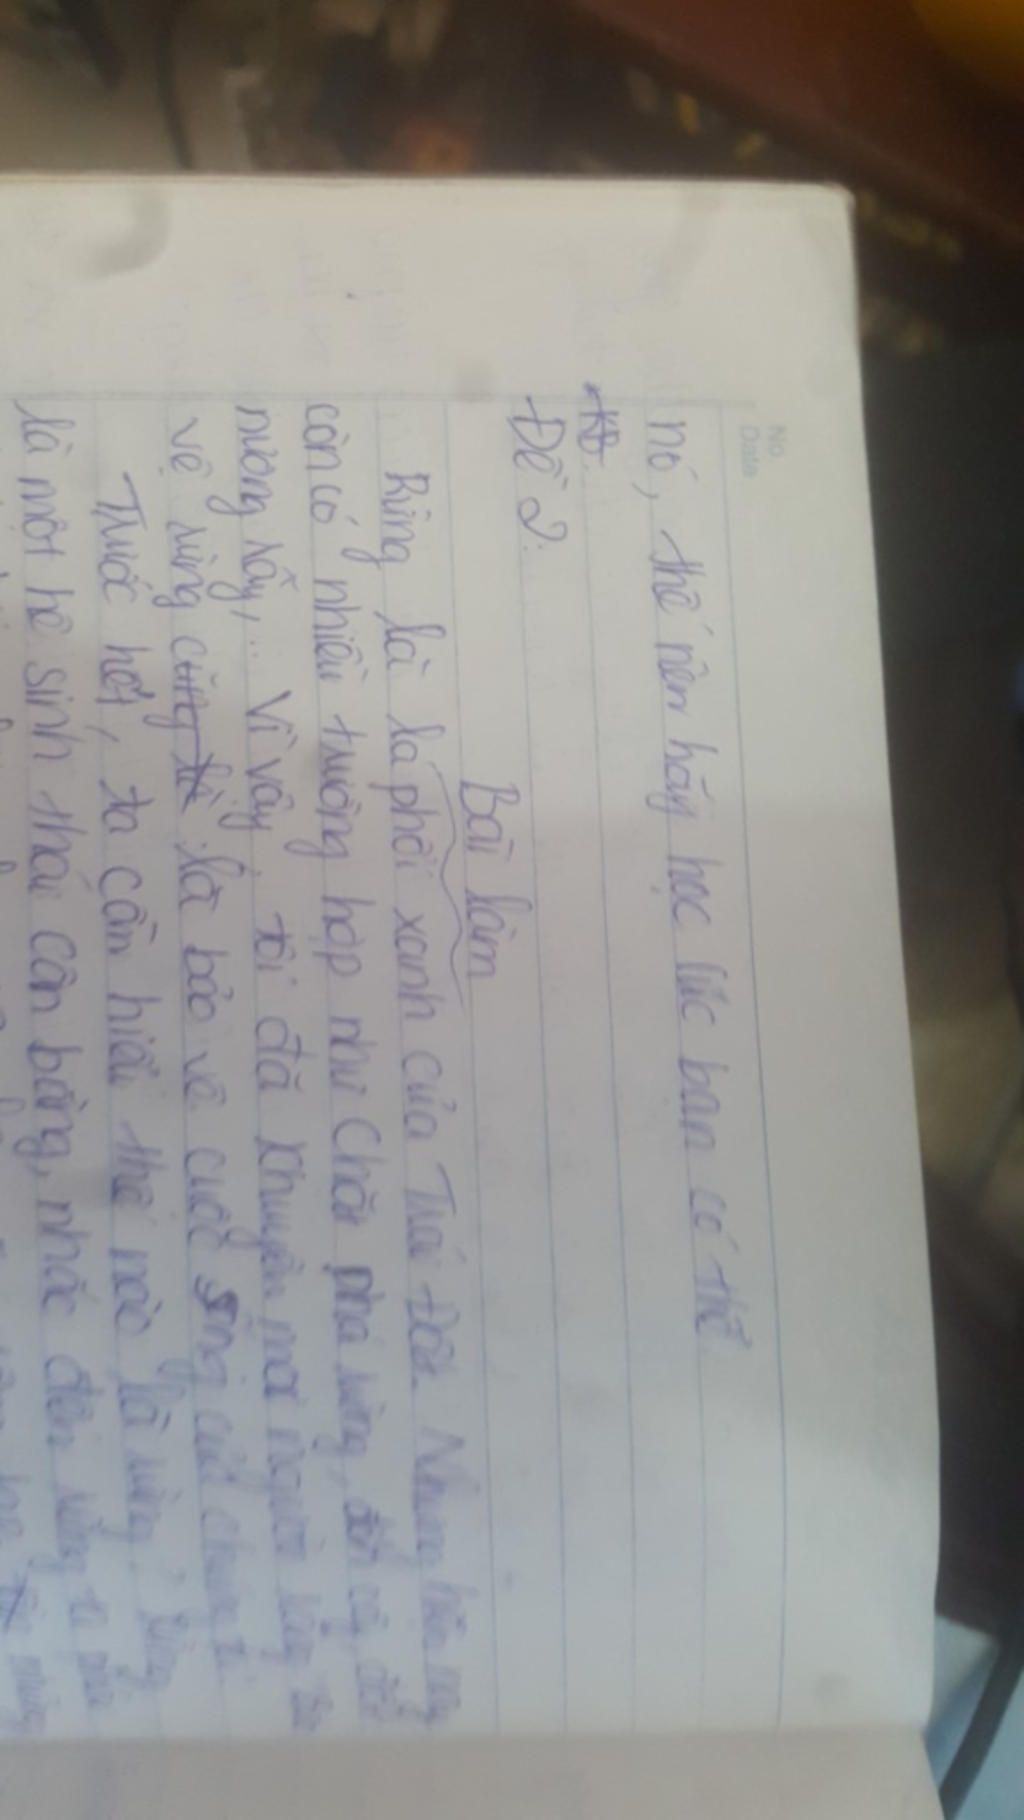 No.
Date
nó, thế nên hãy học lúc bạn có thể
Đề 2:
Bài làm
Rừng là lá phổi xanh của Trái Đất. Nhưng hiện nay
còn có nhiều trường hợp như chặt phá rừng, đốn cây, đốt
nương rẫy,... Vì vậy, tôi đã khuyên mọi người rằng bảo
vệ rừng là bảo vệ cuộc sống của chúng ta
Trước hết, ta cần hiểu thế nào là rừng. Rừng
là một hệ sinh thái cân bằng, nhắc đến rừng ta